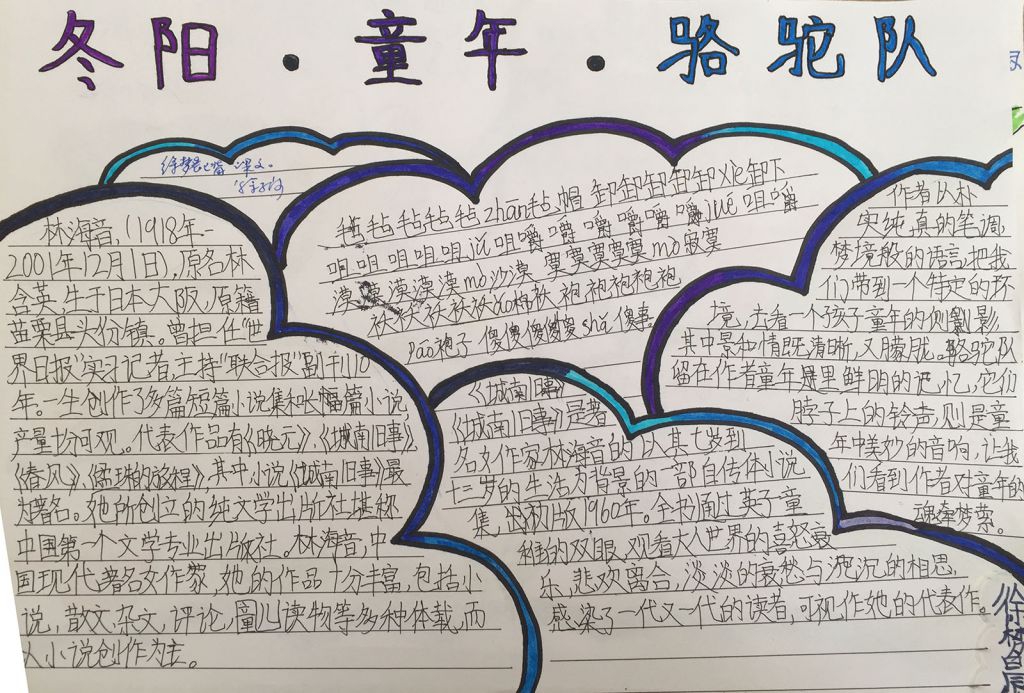 冬阳·童年·骆驼队
课文。
林海音,(1918年-
2001年12月1日),原名林
含英,生于日本大阪,原籍
苗栗县头份镇。曾担任"世
界日报"实习记者,主持"联合报"副刊10
年。一生创作了多篇短篇小说集和长篇小说
产量十分可观。代表作品有《晓云》、《城南旧事》
《春风》《的旅程》,其中小说《城南旧事》最
为著名。她所创立的纯文学出版社堪称
中国第一个文学专业出版社。林海音,中
国现代著名女作家,她的作品十分丰富,包括小
说,散文,杂文,评论,儿读物等多种体裁,而
以小说创作为主。
毡毡毡毡毡zhān毡帽 卸卸卸卸卸xiè卸下
咀咀咀咀咀jǔ咀嚼 嚼嚼嚼嚼嚼jué咀嚼
漠漠漠漠漠mò沙漠 寞寞寞寞寞mò寂寞
袄袄袄袄袄ǎo棉袄 袍袍袍袍袍
páo袍子 傻傻傻傻傻shǎ傻事
《城南旧事》
《城南旧事》是著
名女作家林海音的以其七岁到
十三岁的生活为背景的一部自传体小说
集,初版1960年。全书通过英子童
稚的双眼,观看大人世界的喜怒哀
乐,悲欢离合,淡淡的哀愁与沉沉的相思,
感染了一代又一代的读者,可视作她的代表作。
作者以朴
实纯真的笔调,
梦境般的语言,把我
们带到一个特定的环
境,去看一个孩子童年的侧影
其中景和情既清晰,又朦胧。骆驼队
留在作者童年里鲜明的记忆,它们
脖子上的铃声则是童
年中美妙的音响,让我
们看到作者对童年的
魂牵梦萦。
徐梦晨